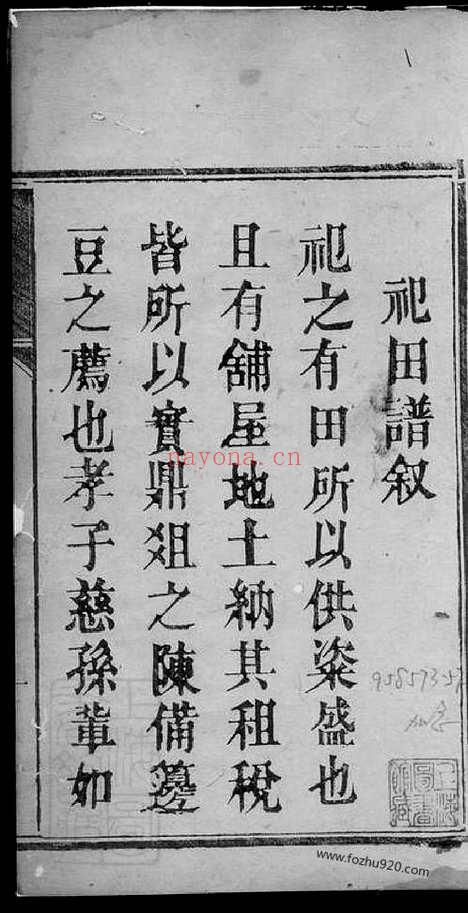 祀田譜叙
祀之有田所以供粢盛也
且有舖屋地土納其租稅
皆所以實鼎俎之陳備籩
豆之薦也孝子慈孫輩如
nayona.cn
www.fozhu920.com